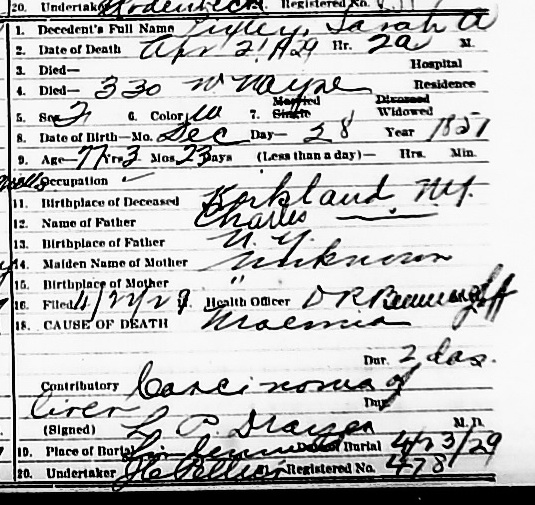 20. Undertaker Registered No.
1. Decedent's Full Name Sarah A
2. Date of Death Apr 21, 1929 Hr. 2a M.
3. Died— Hospital
4. Died— 330 W Wayne Residence
5. Sex F 6. Color W 7. Married Single Divorced Widowed
8. Date of Birth—Mo. Dec Day— 28 Year 1851
9. Age— 77 Yrs 3 Mos. 23 Days (Less than a day)— Hrs. Min.
Occupation
11. Birthplace of Deceased Kirkland NY.
12. Name of Father Charles —
13. Birthplace of Father N. Y.
14. Maiden Name of Mother Unknown
15. Birthplace of Mother "
16. Filed 4/22/29 Health Officer D R
18. CAUSE OF DEATH Uraemia
Dur. 2 das.
Contributory Carcinoma of
liver Dur.
(Signed) L P Drayer M. D.
19. Place of Burial Date of Burial 4/23/29
20. Undertaker Registered No. 478